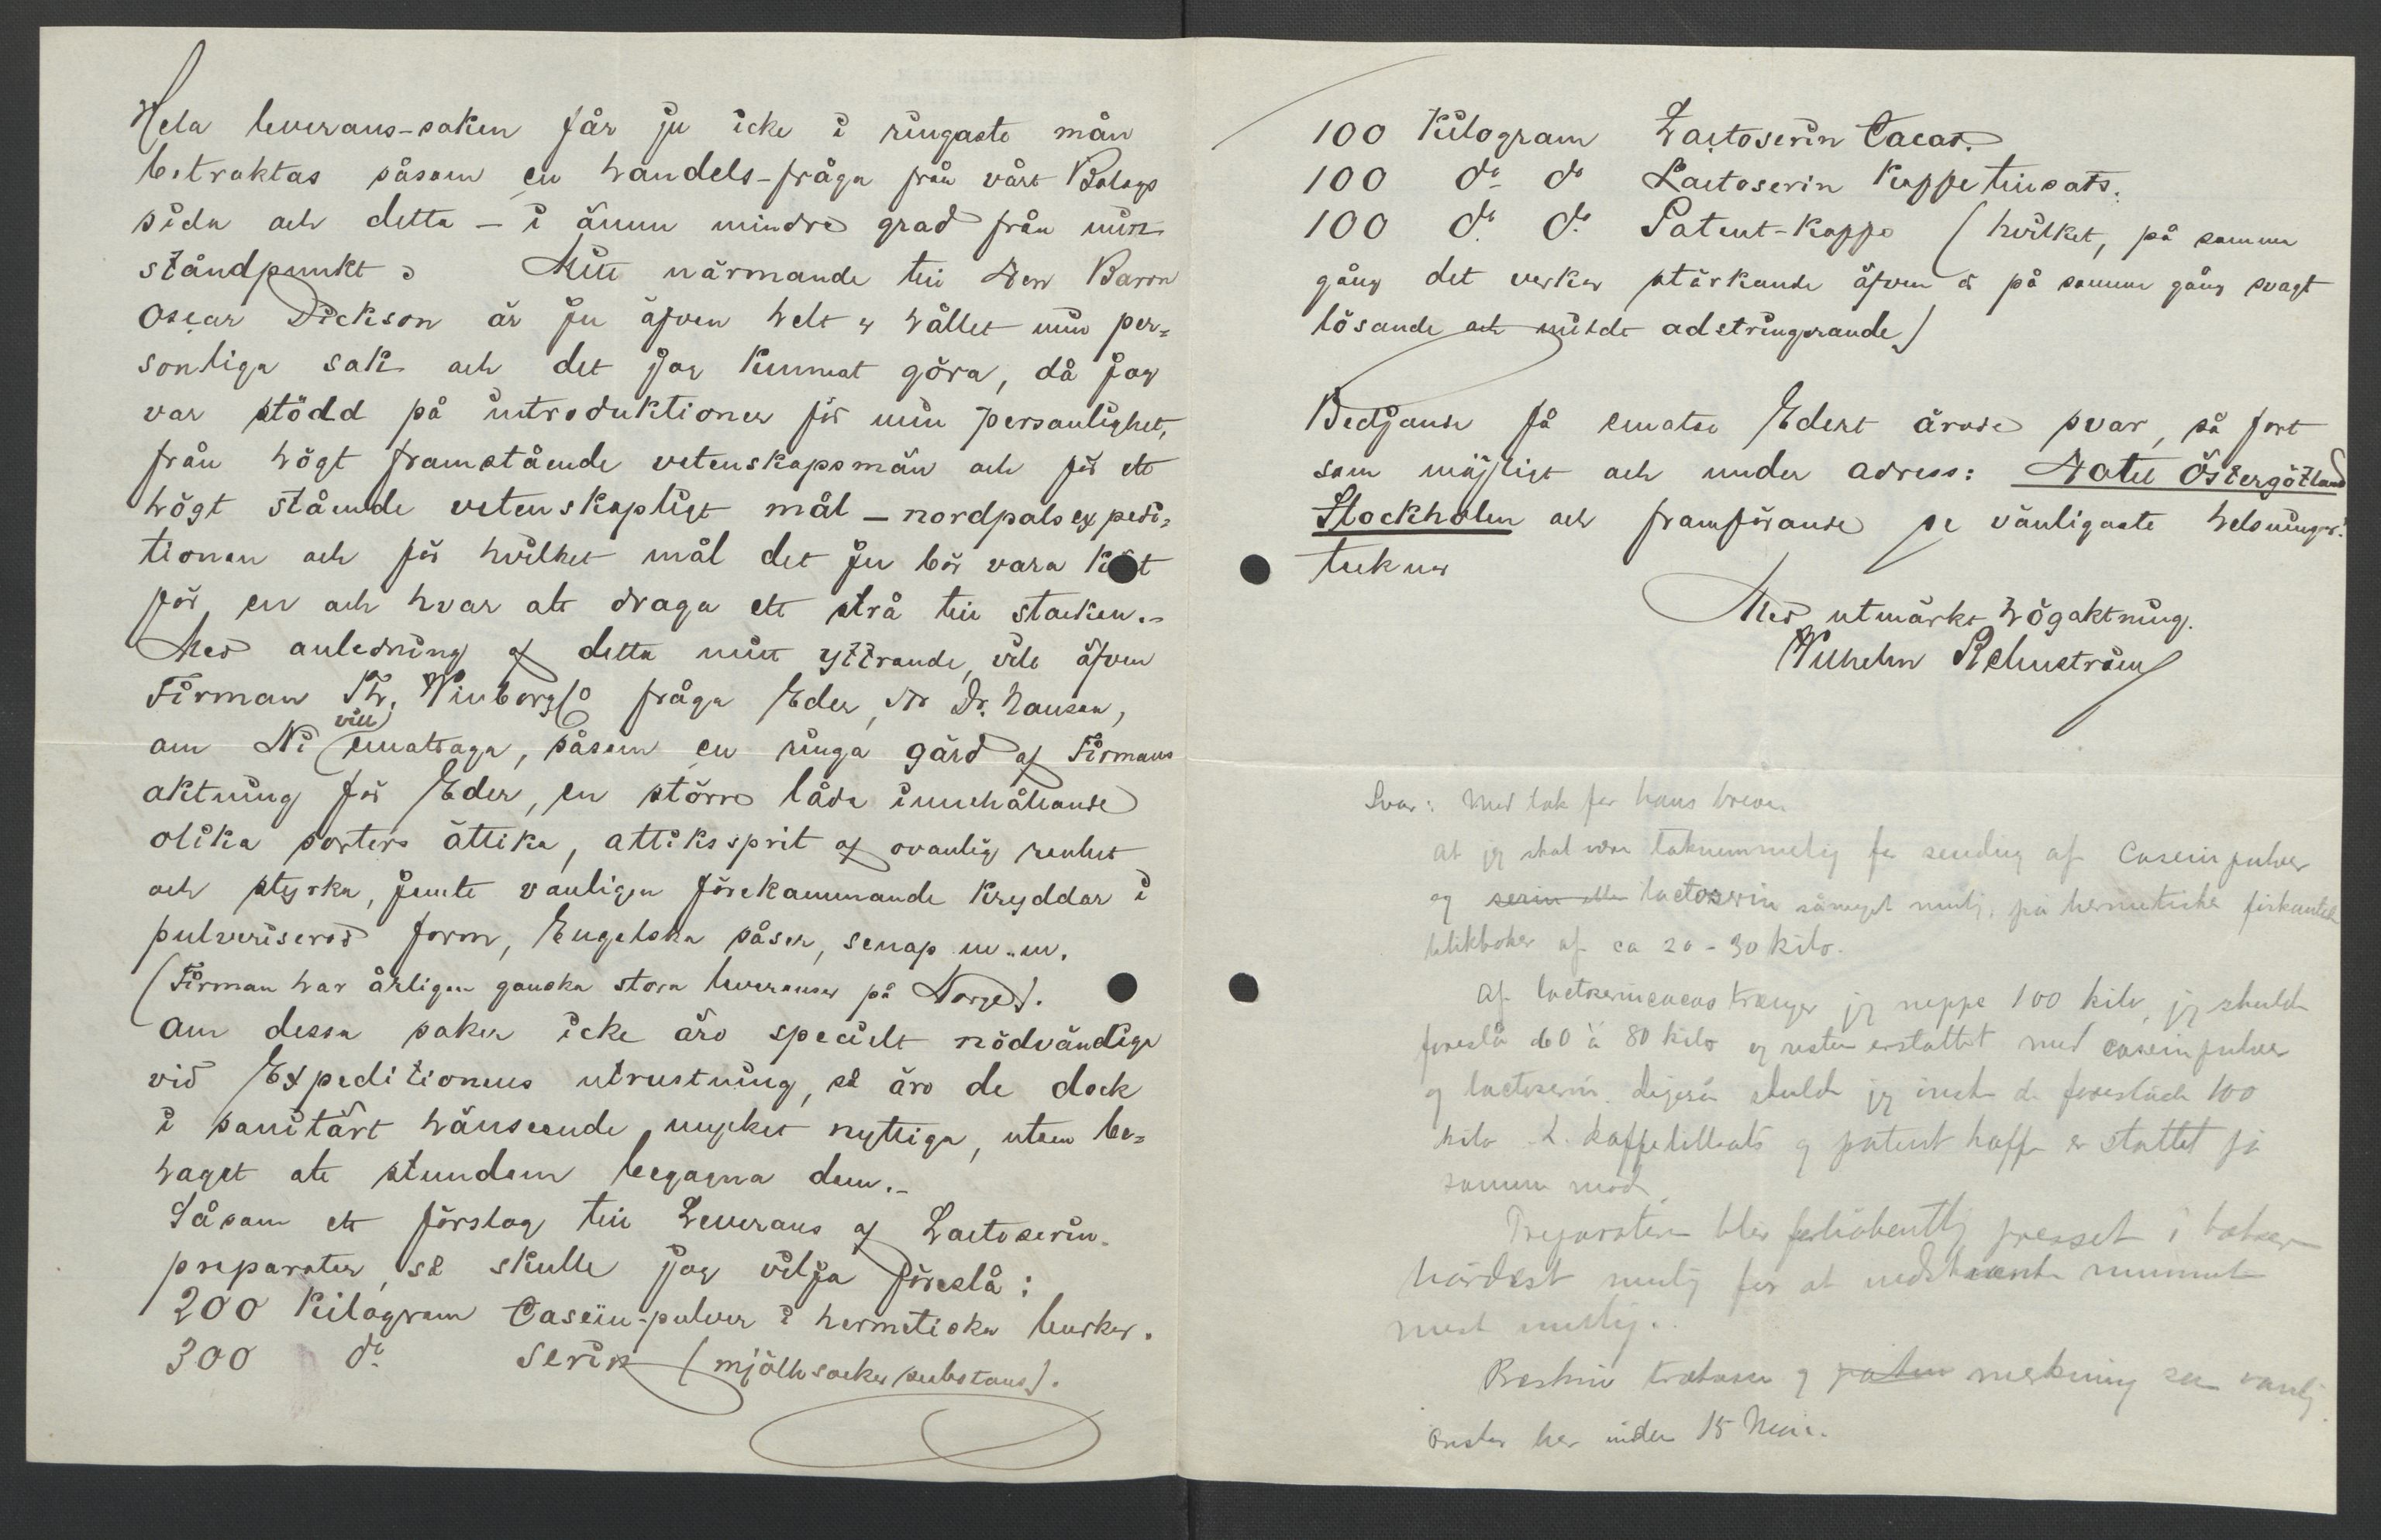 Hela leverans-saken får ju icke i ringaste mån
betraktas såsom en handels-fråga från vårt Bolags
sida och detta – i ännu mindre grad från min
ståndpunkt. Mitt närmande till Herr Baron
Oscar Dickson är ju äfven helt & hållet min per=
sonliga sak och det jag kunnat göra, då jag
var stödd på introduktioner för min personlighet,
från högt framstående vetenskapsmän och för ett
högt stående vetenskapligt mål – nordpolsexpedi=
tionen och för hvilket mål det ju bör vara kärt
för en och hvar att draga ett strå till stacken.–
Med anledning af detta mitt yttrande, vile äfven
Firman Th. Winborg & Co fråga Eder, Hr Dr. Nansen,
om Ni vill emottaga, såsom en ringa gärd af Firmans
aktning för Eder, en större låda innehållande
olika sorters ättika, ättikssprit af ovanlig renhet
och styrka, jemte vanligen förekommande kryddor i
pulveriserad form, Engelska såser, senap m.m.
(Firman har årligen ganska stora leveranser på Norge).
Om dessa saker icke äro specielt nödvändiga
vid Expeditionens utrustning, så äro de dock
i sanitärt hänseende mycket nyttiga, utom be=
haget att stundom begagna dem.–
Såsom ett förslag till Leverans af Lactoserin-
preparater, så skulle jag vilja föreslå:
200 Kilogram Caseïn-pulver i hermetiska burkar.
300 do Serin (mjölksocker substans).
100 Kilogram Lactoserin Cacao.
100 do do Lactoserin Kaffetillsats.
100 do do Patent-Kaffe (hvilket, på samma
gång det verkar stärkande äfven är på samma gång svagt
lösande och mildt adstringerande)
Bedjande få emotse Edert ärade svar, så fort
som möjligt och under adress: Hotel Östergötland
Stockholm och framförande de vänligaste helsningar
tecknar
Med utmärkt högaktning.
Wilhelm Rehnström
Svar: Med tak for hans breve
at jeg skal være taknemmelig for sending af Caseinpulver
og serin eller lactoserin såmeget mulig, på hermetiske firkantede
blikboker af ca 20 – 30 kilo.
Af lactoserincacao trænger jeg neppe 100 kilo, jeg skulde
foreslå 60 à 80 kilo og resten erstattet med caseinpulver
og lactoserin. Ligeså skulde jeg ønske de foreslåede 100
kilo L. kaffetillsats og patent kaffe erstattet på
samme måde.
Preparaterne blir forhåbentlig presset i boksene
hårdest mulig for at indskrænke rummet
mest mulig.
trækasser og merkning som vanlig
ønskes her inden 15 Mai.